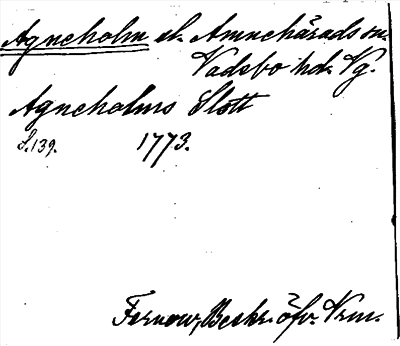 Agneholm ek. Amnehärads sn.
Vadsbo hd. Vg.
Agneholms Slott
S.139. 1773.
Fernow, Beskr. öfv. Vrm.